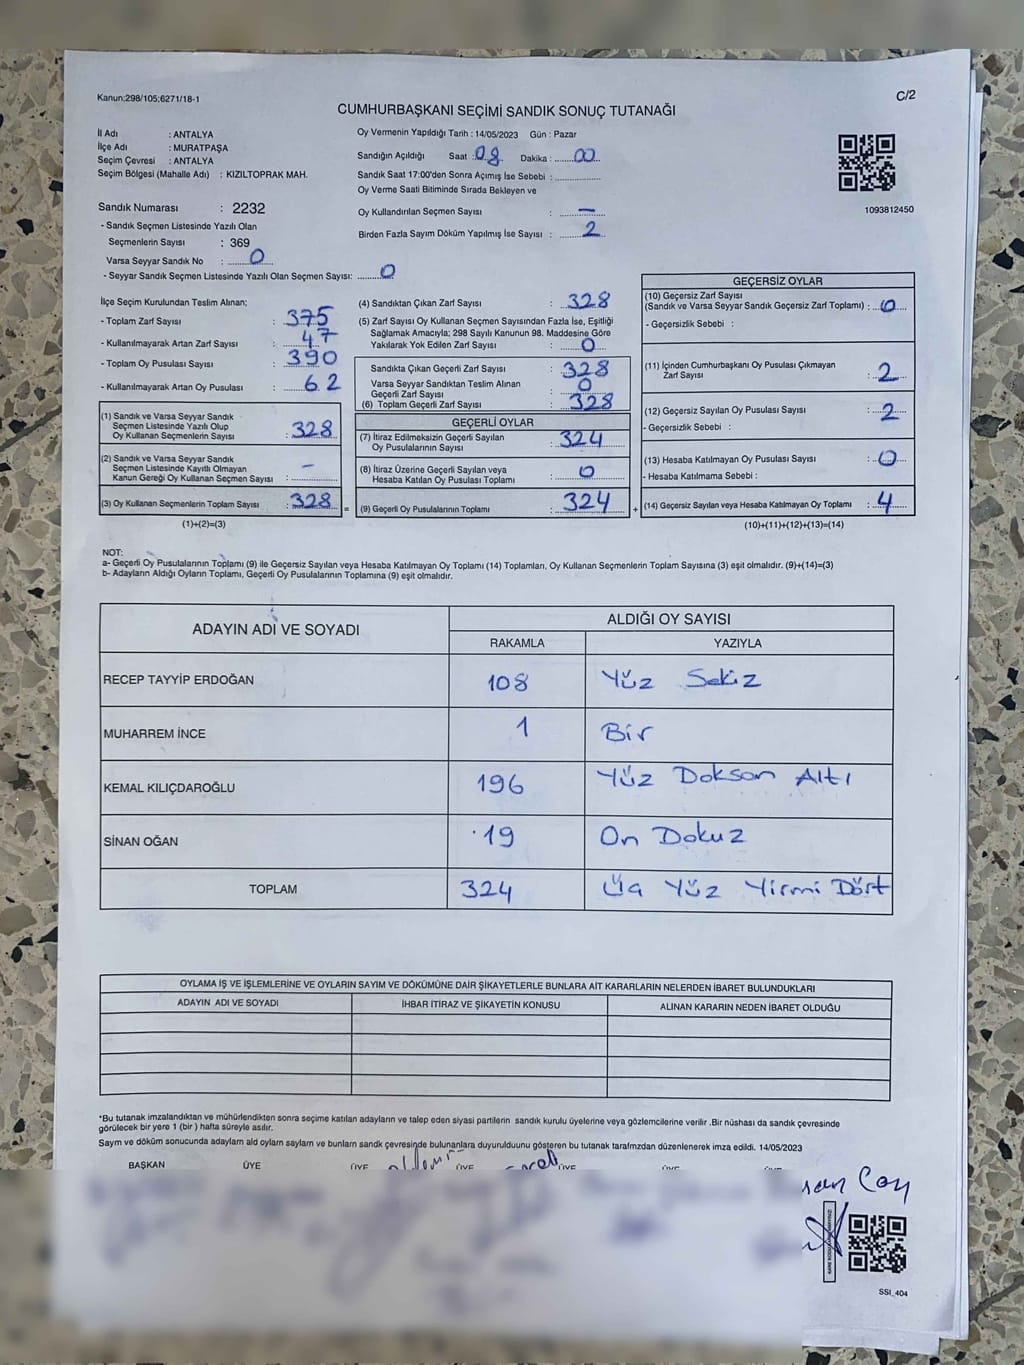 Kanun:298/105;6271/18-1
C/2
CUMHURBAŞKANI SEÇİMİ SANDIK SONUÇ TUTANAĞI
İl Adı : ANTALYA
İlçe Adı : MURATPAŞA
Seçim Çevresi : ANTALYA
Seçim Bölgesi (Mahalle Adı) : KIZILTOPRAK MAH.
Oy Vermenin Yapıldığı Tarih : 14/05/2023 Gün : Pazar
Sandığın Açıldığı Saat : 08 Dakika : 00
Sandık Saat 17:00'den Sonra Açımış İse Sebebi :
Oy Verme Saati Bitiminde Sırada Bekleyen ve
Oy Kullandırılan Seçmen Sayısı : —
Birden Fazla Sayım Döküm Yapılmış İse Sayısı : 2
1093812450
Sandık Numarası : 2232
- Sandık Seçmen Listesinde Yazılı Olan
Seçmenlerin Sayısı : 369
Varsa Seyyar Sandık No : 0
- Seyyar Sandık Seçmen Listesinde Yazılı Olan Seçmen Sayısı: 0
İlçe Seçim Kurulundan Teslim Alınan;
- Toplam Zarf Sayısı : 375
- Kullanılmayarak Artan Zarf Sayısı : 47
- Toplam Oy Pusulası Sayısı : 390
- Kullanılmayarak Artan Oy Pusulası : 62
(1) Sandık ve Varsa Seyyar Sandık
Seçmen Listesinde Yazılı Olup
Oy Kullanan Seçmenlerin Sayısı : 328
(2) Sandık ve Varsa Seyyar Sandık
Seçmen Listesinde Kayıtlı Olmayan
Kanun Gereği Oy Kullanan Seçmen Sayısı : —
(3) Oy Kullanan Seçmenlerin Toplam Sayısı : 328 =
(1)+(2)=(3)
(4) Sandıktan Çıkan Zarf Sayısı : 328
(5) Zarf Sayısı Oy Kullanan Seçmen Sayısından Fazla İse, Eşitliği
Sağlamak Amacıyla; 298 Sayılı Kanunun 98. Maddesine Göre
Yakılarak Yok Edilen Zarf Sayısı : 0
Sandıkta Çıkan Geçerli Zarf Sayısı : 328
Varsa Seyyar Sandıktan Teslim Alınan
Geçerli Zarf Sayısı : 0
(6) Toplam Geçerli Zarf Sayısı : 328
GEÇERLİ OYLAR
(7) İtiraz Edilmeksizin Geçerli Sayılan
Oy Pusulalarının Sayısı : 324
(8) İtiraz Üzerine Geçerli Sayılan veya
Hesaba Katılan Oy Pusulası Toplamı : 0
(9) Geçerli Oy Pusulalarının Toplamı : 324 +
GEÇERSİZ OYLAR
(10) Geçersiz Zarf Sayısı
(Sandık ve Varsa Seyyar Sandık Geçersiz Zarf Toplamı) : 0
- Geçersizlik Sebebi :
(11) İçinden Cumhurbaşkanı Oy Pusulası Çıkmayan
Zarf Sayısı : 2
(12) Geçersiz Sayılan Oy Pusulası Sayısı : 2
- Geçersizlik Sebebi :
(13) Hesaba Katılmayan Oy Pusulası Sayısı : 0
- Hesaba Katılmama Sebebi :
(14) Geçersiz Sayılan veya Hesaba Katılmayan Oy Toplamı : 4
(10)+(11)+(12)+(13)=(14)
NOT:
a- Geçerli Oy Pusulalarının Toplamı (9) ile Geçersiz Sayılan veya Hesaba Katılmayan Oy Toplamı (14) Toplamları, Oy Kullanan Seçmenlerin Toplam Sayısına (3) eşit olmalıdır. (9)+(14)=(3)
b- Adayların Aldığı Oyların Toplamı, Geçerli Oy Pusulalarının Toplamına (9) eşit olmalıdır.
ADAYIN ADI VE SOYADI
ALDIĞI OY SAYISI
RAKAMLA YAZIYLA
RECEP TAYYİP ERDOĞAN 108 Yüz Sekiz
MUHARREM İNCE 1 Bir
KEMAL KILIÇDAROĞLU 196 Yüz Doksan Altı
SİNAN OĞAN 19 On Dokuz
TOPLAM 324 Üç Yüz Yirmi Dört
OYLAMA İŞ VE İŞLEMLERİNE VE OYLARIN SAYIM VE DÖKÜMÜNE DAİR ŞİKAYETLERLE BUNLARA AİT KARARLARIN NELERDEN İBARET BULUNDUKLARI
ADAYIN ADI VE SOYADI İHBAR İTİRAZ VE ŞİKAYETİN KONUSU ALINAN KARARIN NEDEN İBARET OLDUĞU
*Bu tutanak imzalandıktan ve mühürlendikten sonra seçime katılan adayların ve talep eden siyasi partilerin sandık kurulu üyelerine veya gözlemcilerine verilir .Bir nüshası da sandık çevresinde
görülecek bir yere 1 (bir ) hafta süreyle asılır.
Sayım ve döküm sonucunda adaylam ald oylam saylam ve bunlam sandk çevresinde bulunanlara duyurulduunu gösteren bu tutanak tarafmzdan düzenlenerek imza edildi. 14/05/2023
BAŞKAN ÜYE ÜYE ÜYE ÜYE
SSI_404